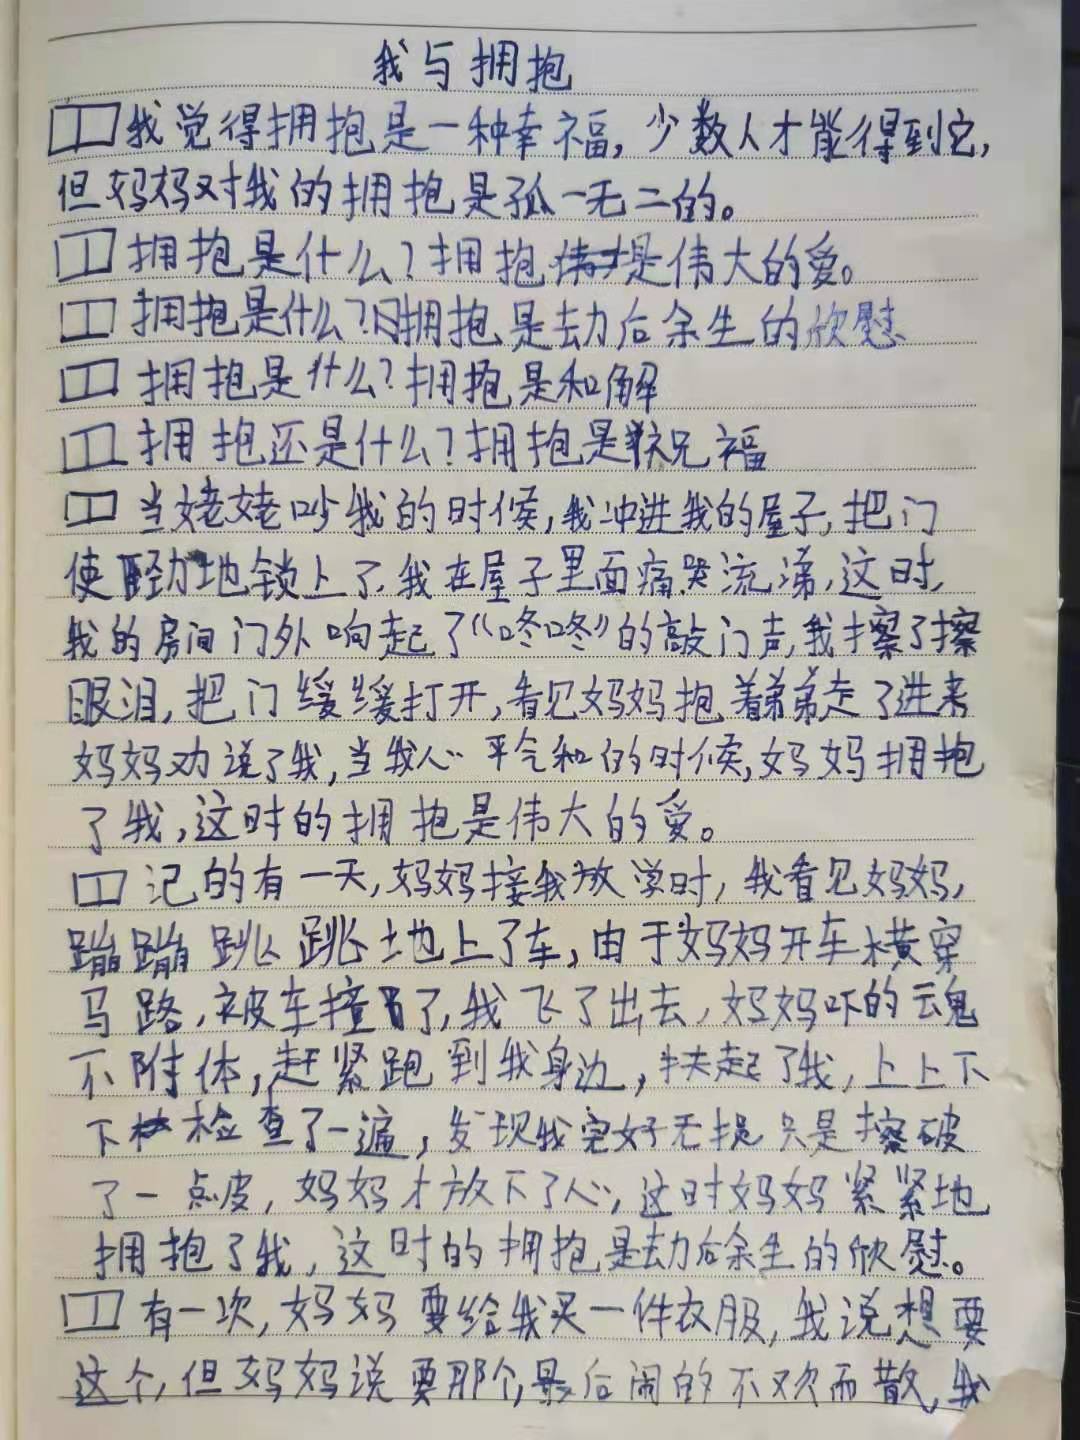 我与拥抱
我觉得拥抱是一种幸福,少数人才能得到它,
但妈妈对我的拥抱是孤一无二的。
拥抱是什么?拥抱是伟大的爱。
拥抱是什么?拥抱是劫后余生的欣慰
拥抱是什么?拥抱是和解
拥抱还是什么?拥抱是祝福
当姥姥吵我的时候,我冲进我的屋子,把门
使劲地锁上了,我在屋子里面痛哭流涕,这时,
我的房间门外响起了“咚咚”的敲门声,我擦了擦
眼泪,把门缓缓打开,看见妈妈抱着弟弟走了进来
妈妈劝说了我,当我心平气和的时候,妈妈拥抱
了我,这时的拥抱是伟大的爱。
记的有一天,妈妈接我放学时,我看见妈妈,
蹦蹦跳跳地上了车,由于妈妈开车横穿
马路,被车撞了,我飞了出去,妈妈吓的魂
不附体,赶紧跑到我身边,扶起了我,上上下
下检查了一遍,发现我完好无损只是擦破
了一点皮,妈妈才放下了心,这时妈妈紧紧地
拥抱了我,这时的拥抱是劫后余生的欣慰。
有一次,妈妈要给我买一件衣服,我说想要
这个,但妈妈说要那个,最后闹的不欢而散,我